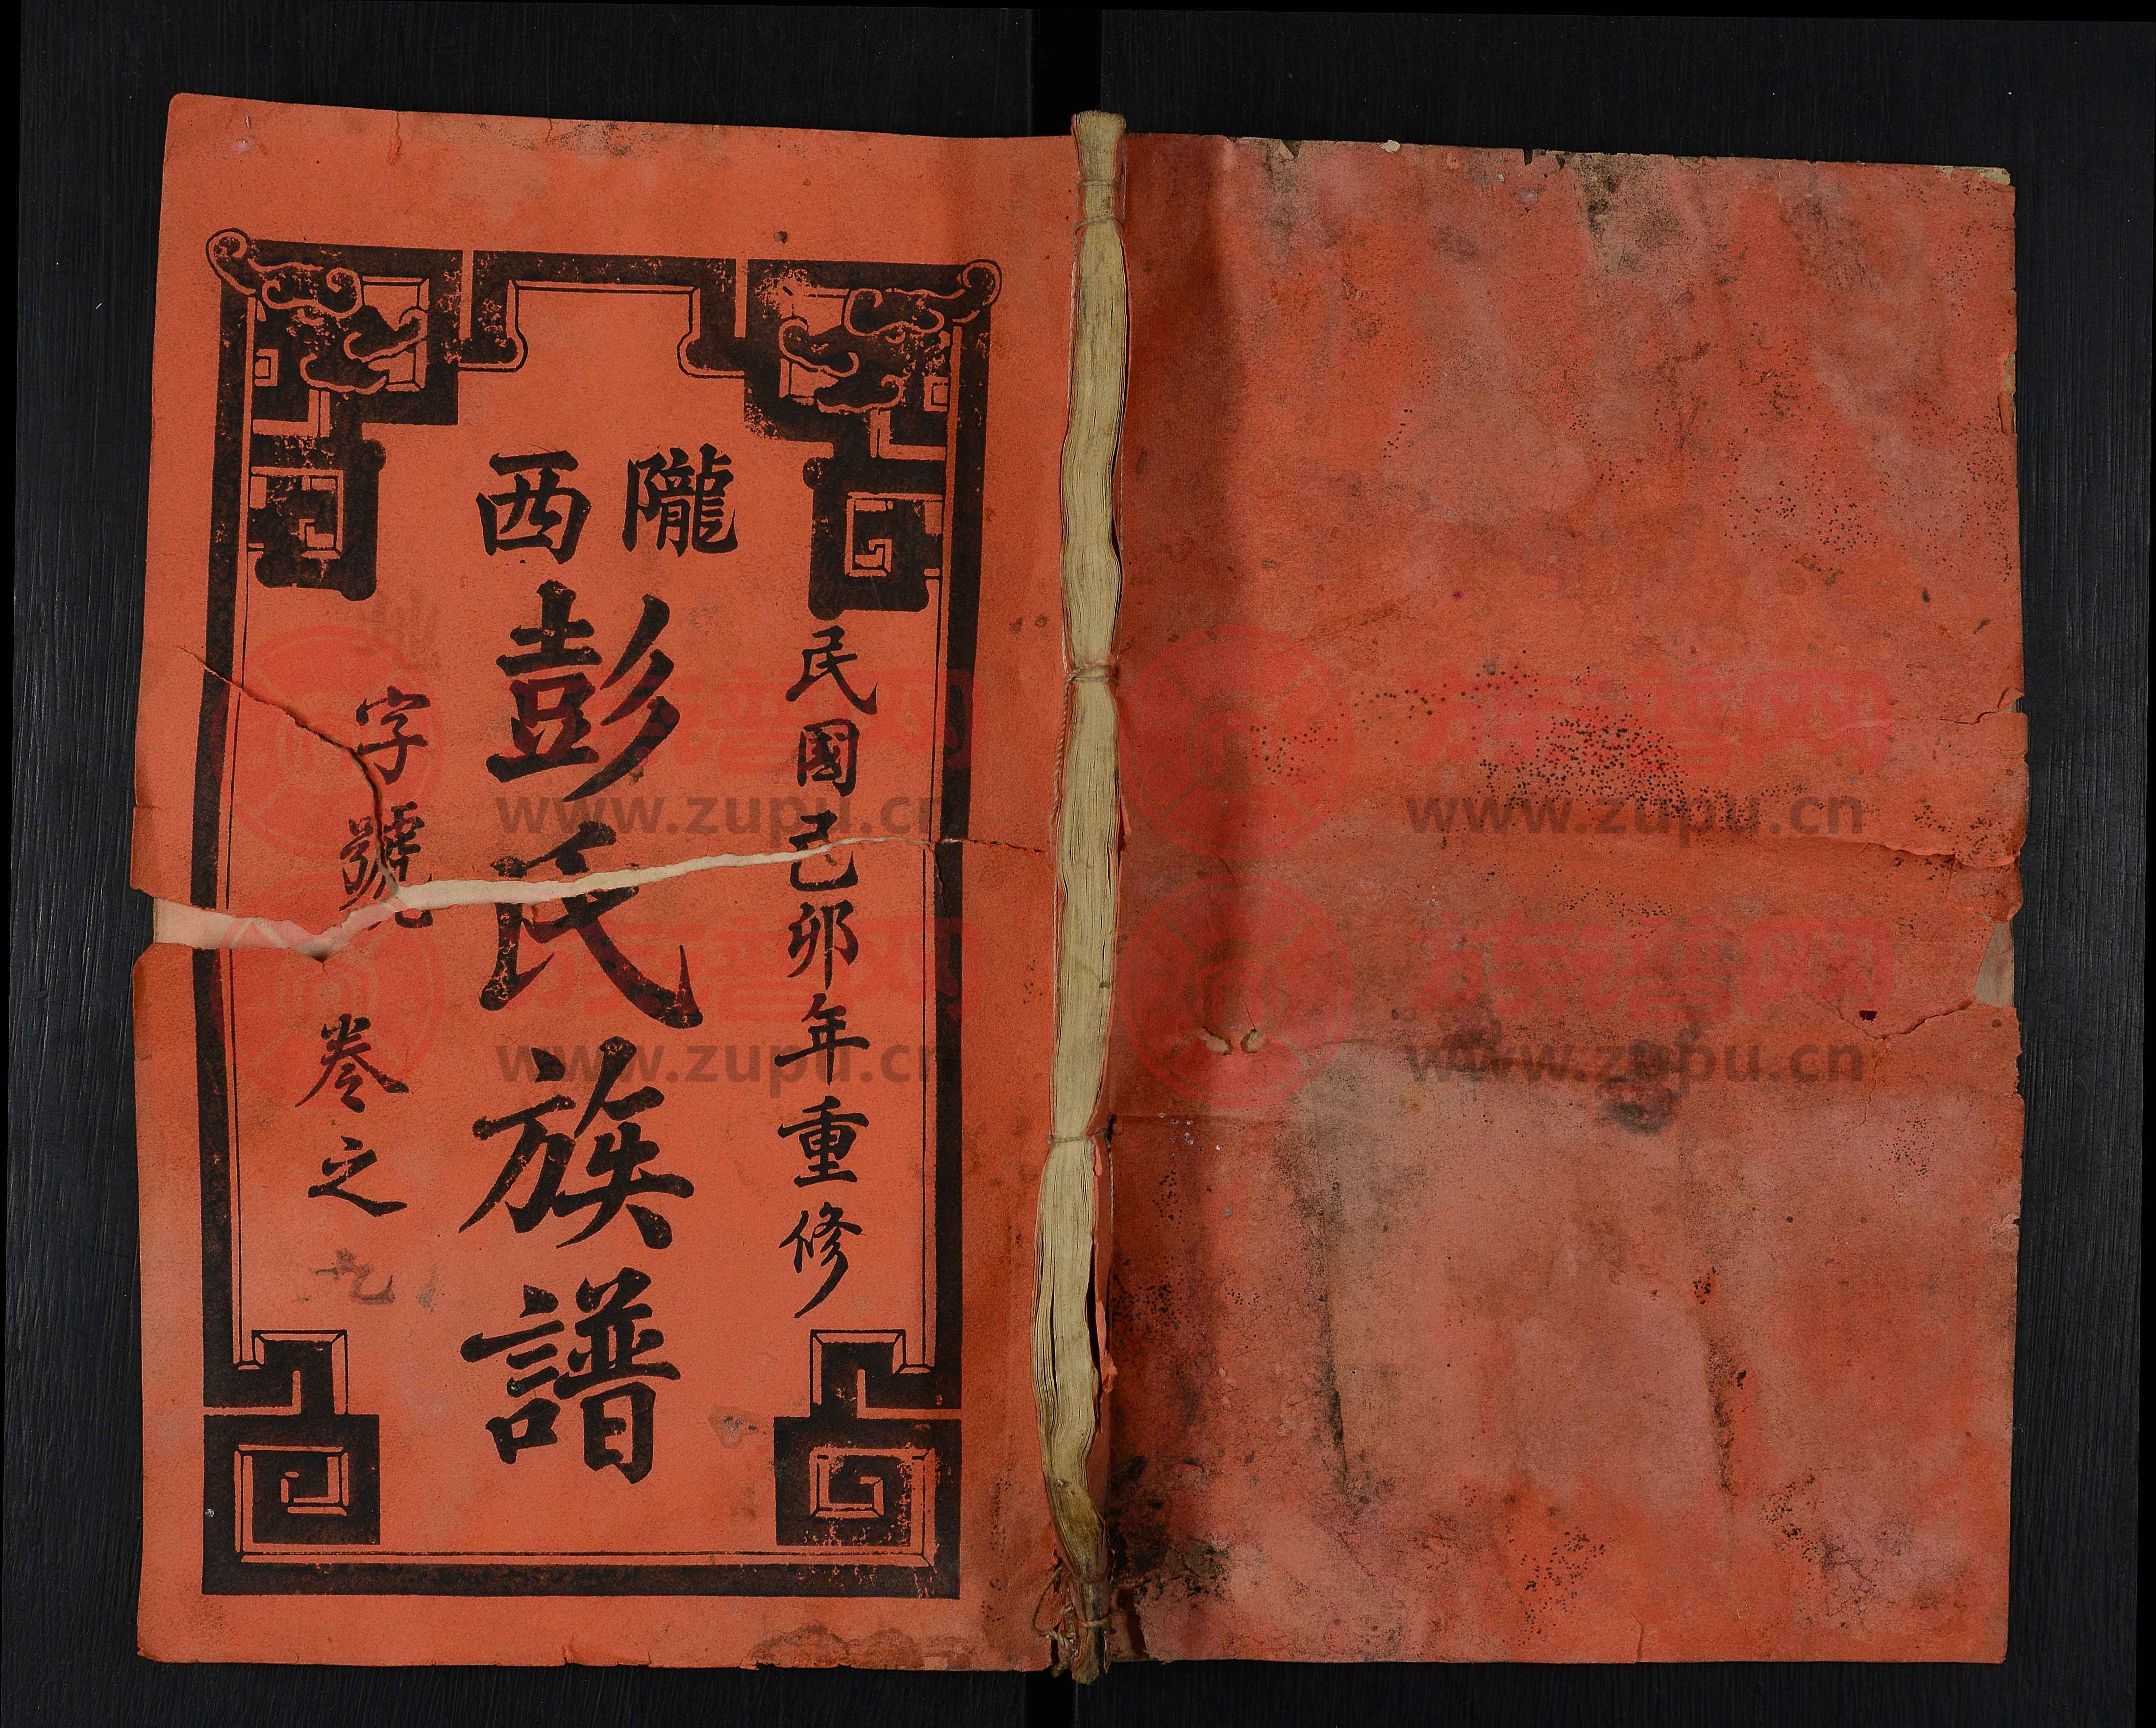 民國己卯年重修
隴西
彭氏族譜
字號 卷之
族譜网
www.zupu.cn
www.zupu.cn
族譜网
www.zupu.cn
www.zupu.cn